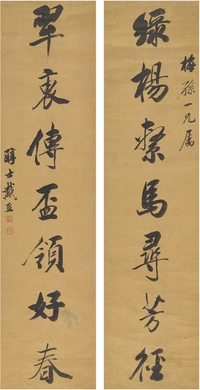 梅孫一兄屬
綠楊繫馬尋芳徑
翠裹傳盃領好春
醇士戴熙